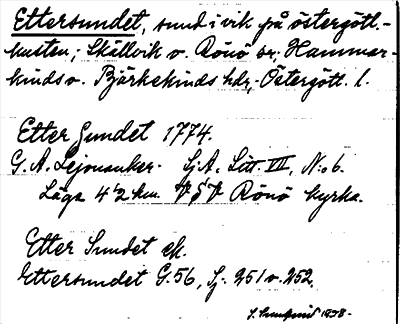 Ettersundet, sund i vik på östergötl.-
kusten; Skällvik o. Rönö sr, Hammar-
kinds o. Björkekinds hdr, Östergötl. l.
Etter Sundet 1774.
G. A. Lejonanker. Sj. A. Litt. III, N:o 6.
Läge 4 1/2 km. V S V Rönö kyrka.
Etter Sundet ek.
Ettersundet G. 56, Sj. 251 o. 252.
1938.